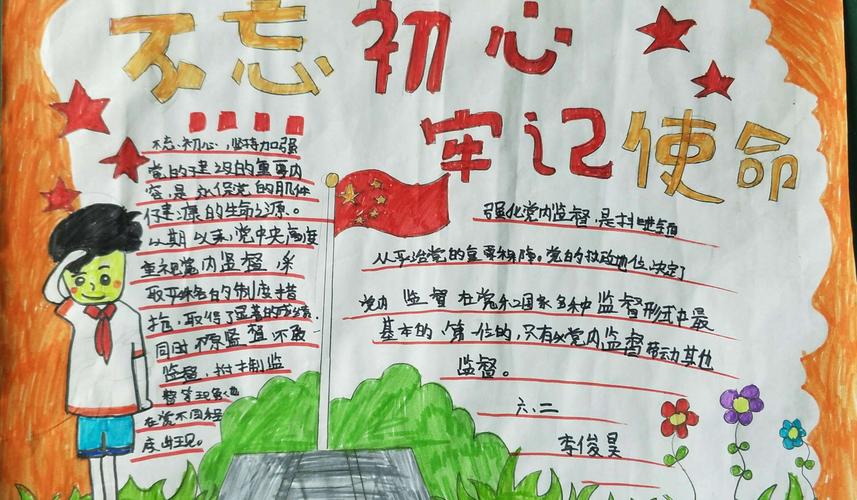 不忘初心
牢记使命
不忘初心,坚持加强
党的建设的重要内
容,是确保党的肌体
健康的生命之源。
以期以来,党中央高度
重视党内监督,采
取严格的制度措
施,取得了显著的成绩.
同时不愿监督不敢
监督,抵制监
督等现象也
在党不同程
度出现。
强化党内监督,是推进全面
从严治党的重要保障。党的执政地位,决定了
党内 监督 在党和国家各种监督形式中最
基本的 第一位的,只有以党内监督带动其他
监督。
六、二
李俊昊